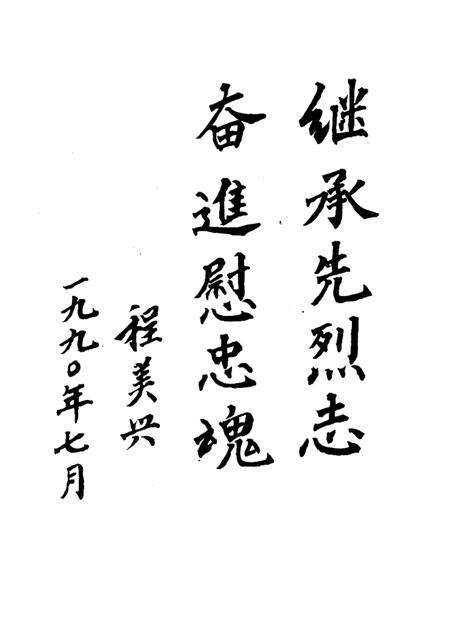 继承先烈志
奋進慰忠魂
程美兴
一九九〇年七月